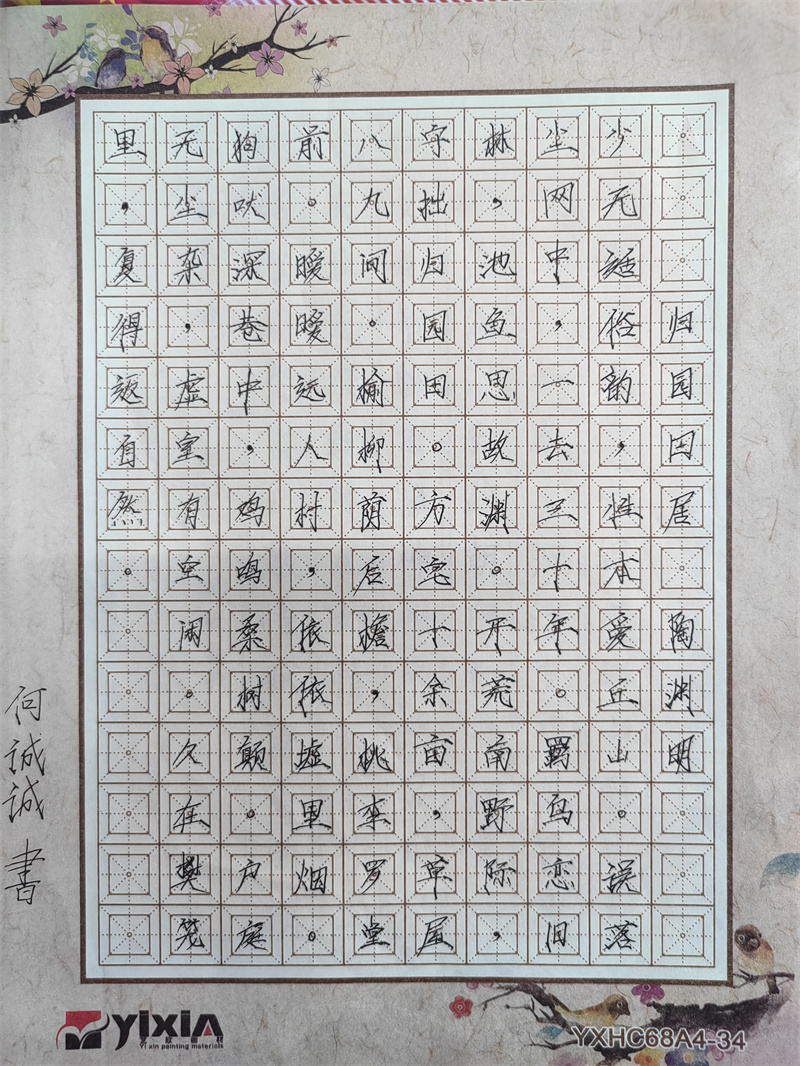 归园田居 陶渊明
少无適俗韵，性本爱丘山。误落
尘网中，一去三十年。羁鸟恋旧
林，池鱼思故渊。开荒南野际，
守拙归园田。方宅十余亩，草屋
八九间。榆柳荫后檐，桃李罗堂
前。暧暧远人村，依依墟里烟。
狗吠深巷中，鸡鸣桑树颠。户庭
无尘杂，虚室有空闲。久在樊笼
里，复得返自然。
何诚诚 書
yixin
艺欣画材
Yi xin painting materials
YXHC68A4-34